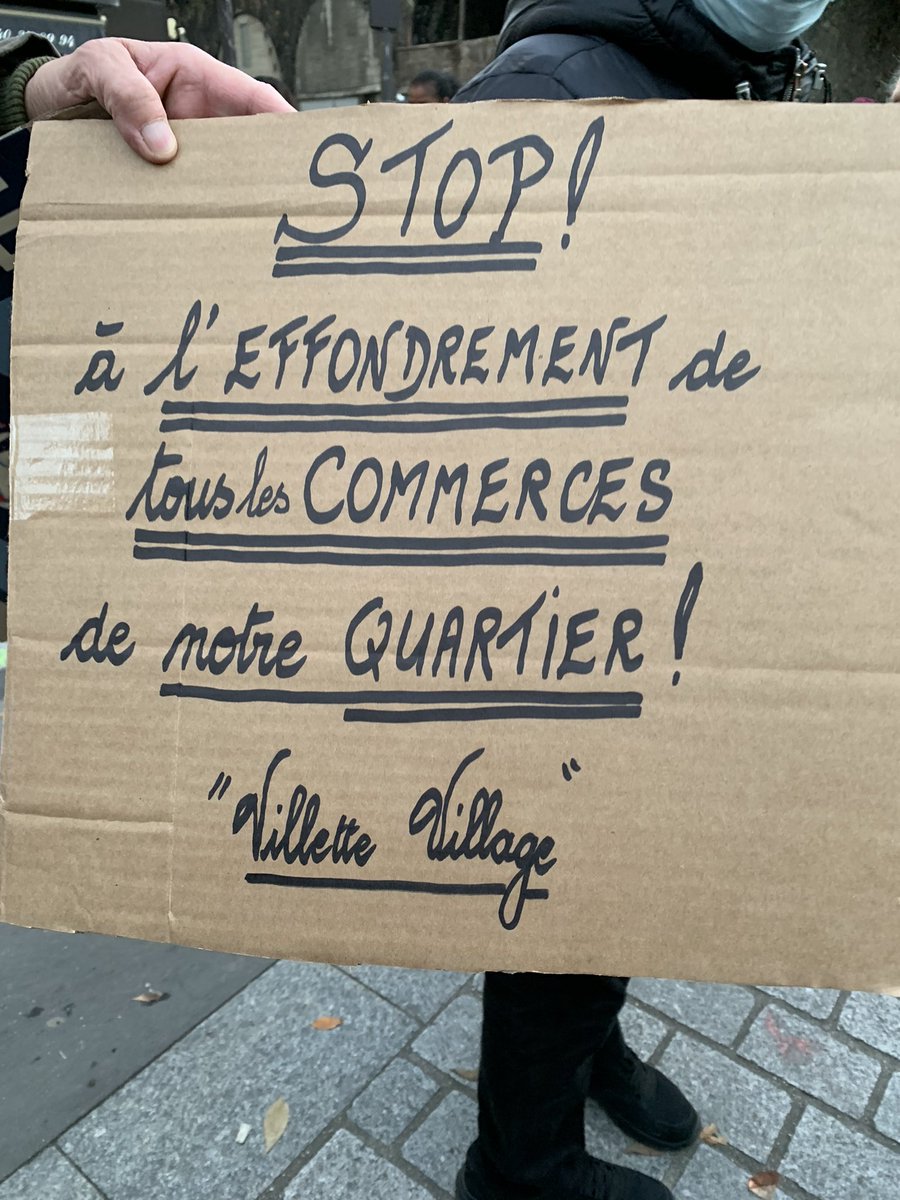 STOP!
à l'EFFONDREMENT de
tous les COMMERCES
de notre QUARTIER!
"Villette Village"